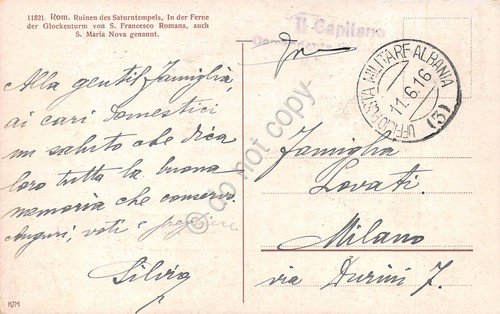 11821. Rom. Ruinen des Saturntempels, in der Ferne
der Glockenturm von S. Francesco Romana, auch
S. Maria Nova genannt.
Il Capitano
UFFICIO POSTA MILITARE ALBANIA
11.6.16
(3)
Alla gentil famiglia,
ai cari domestici
un saluto che dica
loro tutta la buona
memoria che conservo.
Auguri, voti e preghiere.
Silvio
Famiglia
Lovati.
Milano
via Durini 7.
do not copy